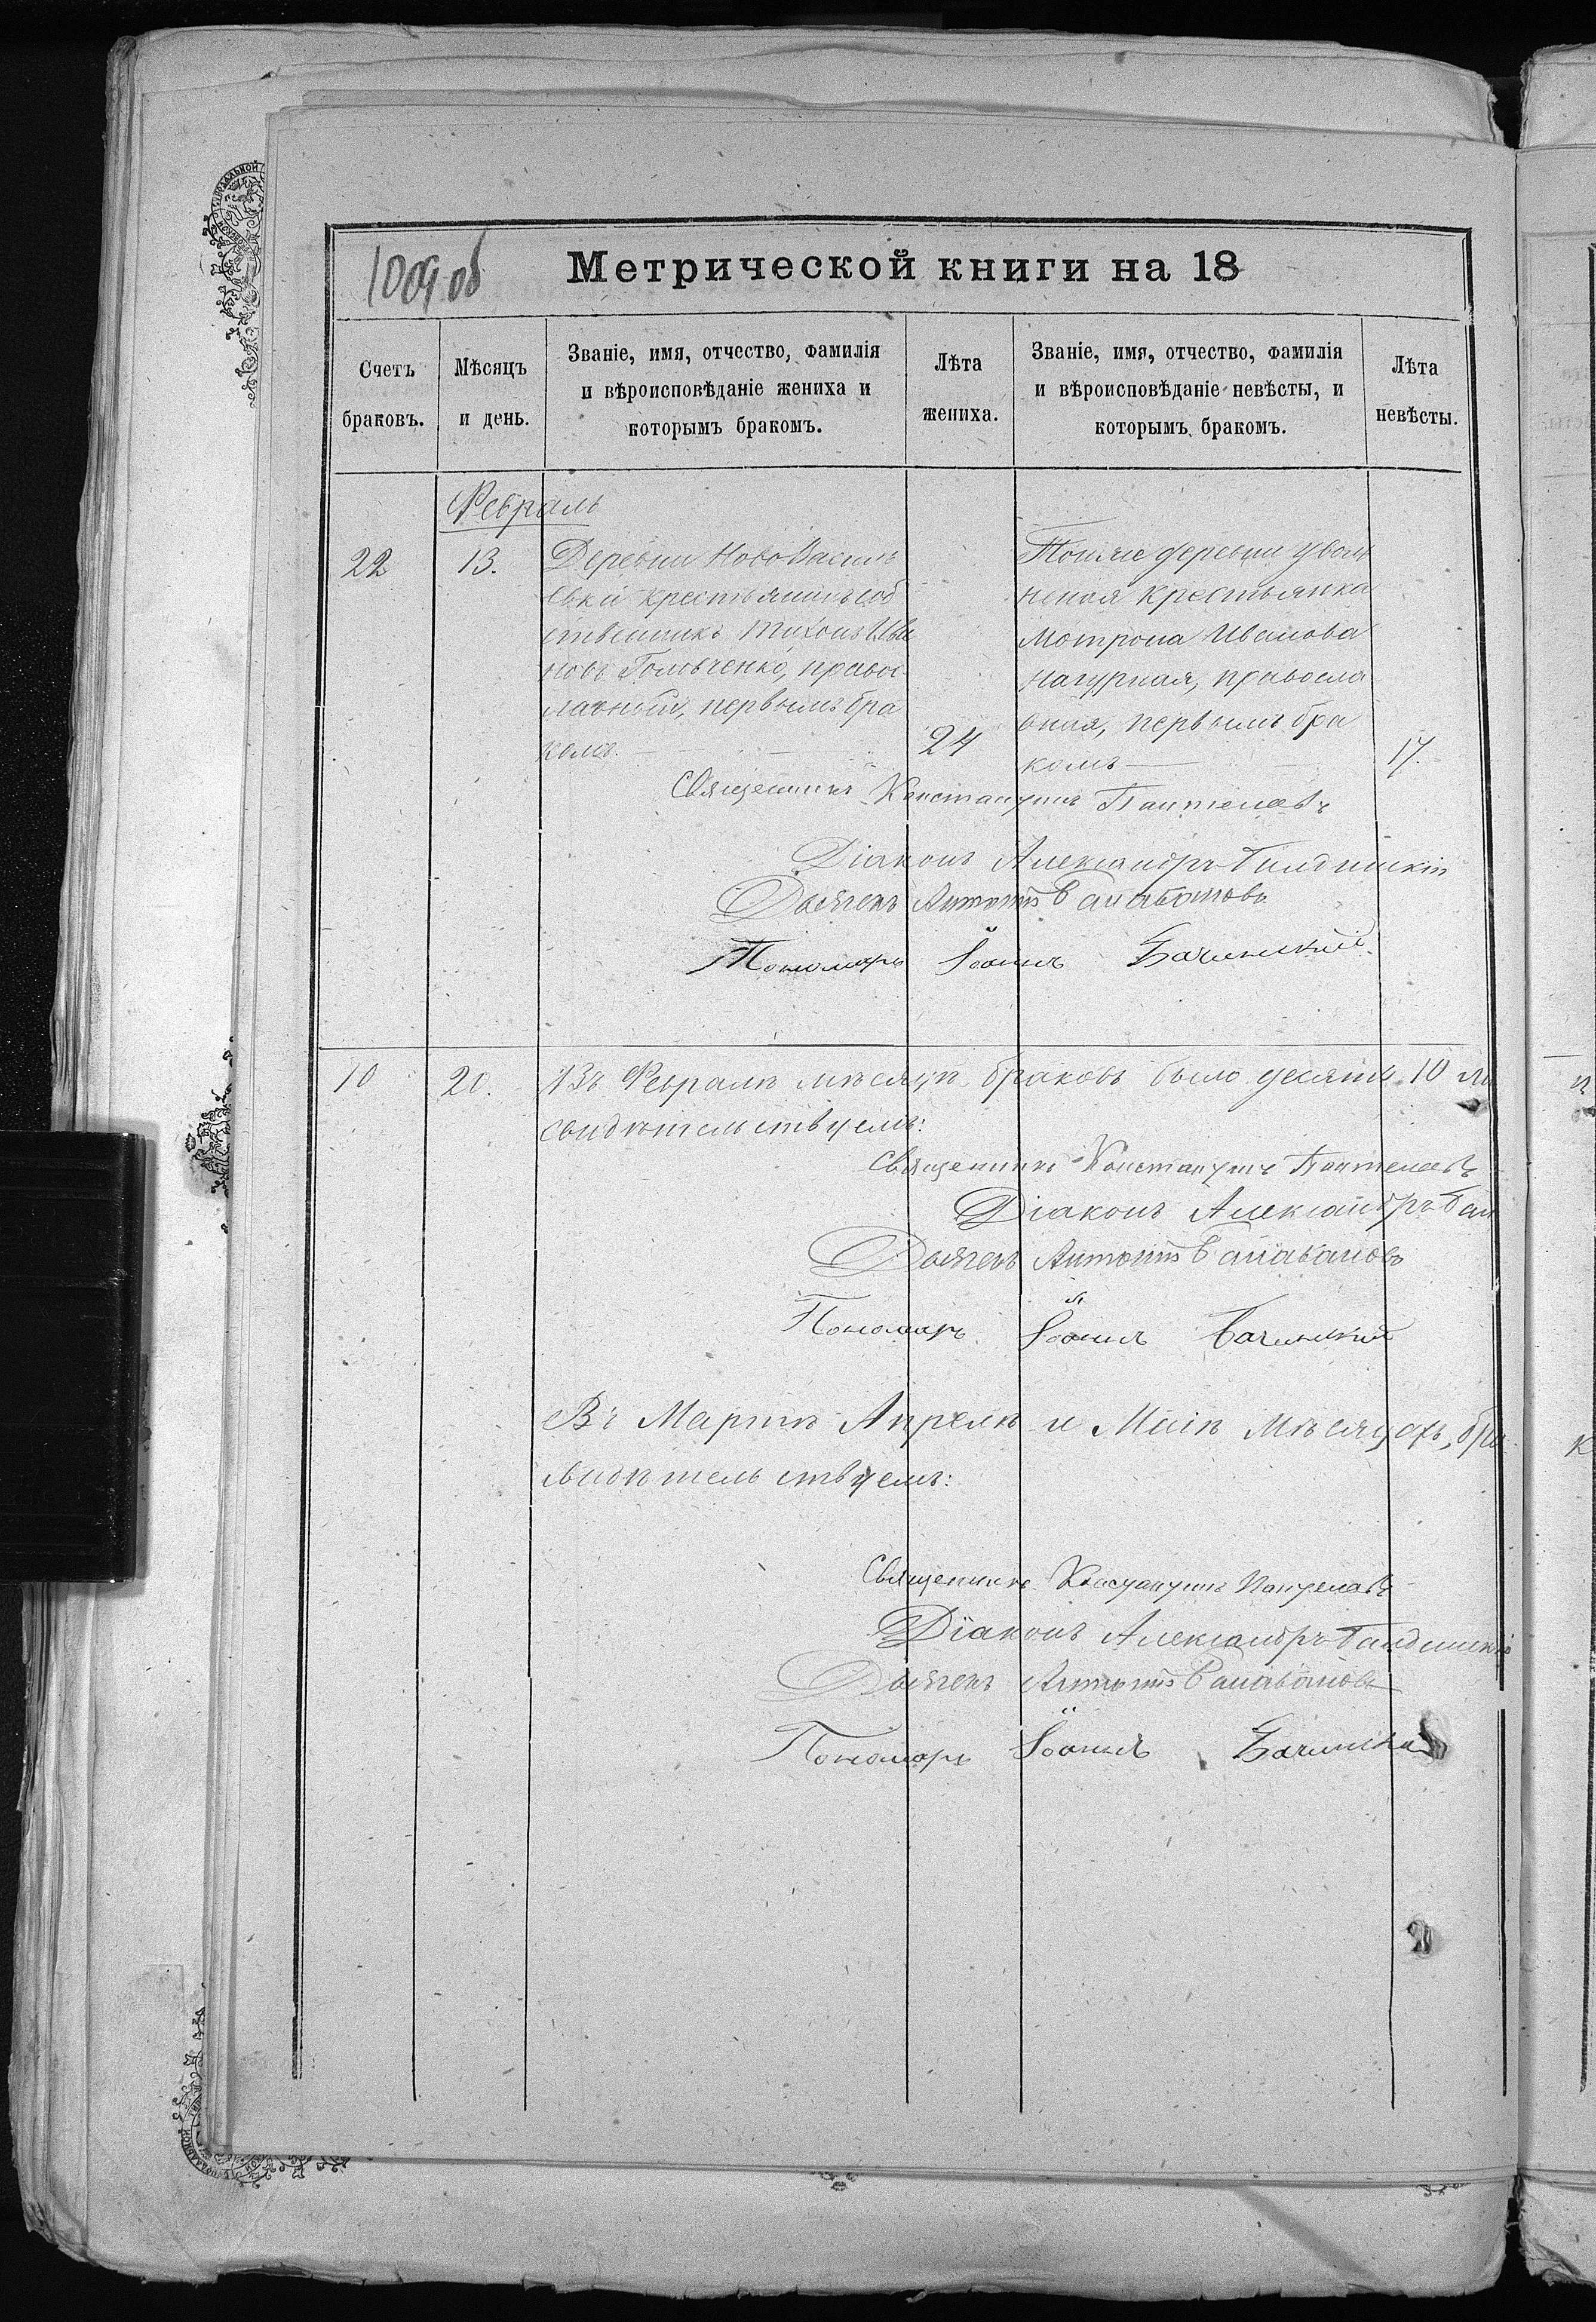 1009 об
Метрической книги на 18
Счетъ браковъ.
Мѣсяцъ и день.
Званіе, имя, отчество, фамилія
и вѣроисповѣданіе жениха и
которымъ бракомъ.
Лѣта жениха.
Званіе, имя, отчество, фамилія
и вѣроисповѣданіе невѣсты, и
которымъ бракомъ.
Лѣта невѣсты.
Февраль
22
13.
Деревни НовоВасиль
евки крестьянинъ соб
ственникъ Тихонъ Ива
новъ Голоўченко, правос
лавный, первымъ бра
комъ.
24
Тойже деревни увол
неная крестьянка
Мотрона Иванова
Нагурная, правосла
вная, первымъ бра
комъ
17.
Священникъ Константинъ Пантелеевъ
Діаконъ Александръ
Дьячекъ Антоній Балабановъ
Пономарь Іоаннъ Бачинскій.
10
20.
Въ Февралѣ мѣсяцѣ браковъ было десять 10
свидѣтельствуемъ:
Священникъ Константинъ Пантелеевъ
Діаконъ Александръ
Дьячекъ Антоній Балабановъ
Пономарь Іоаннъ Бачинскій
Въ Мартѣ Апрелѣ и Маіѣ мѣсяцахъ, бра
свидѣтельствуемъ:
Священникъ Константинъ Пантелеевъ
Діаконъ Александръ
Дьячекъ Антоній Балабановъ
Пономарь Іоаннъ Бачинскій